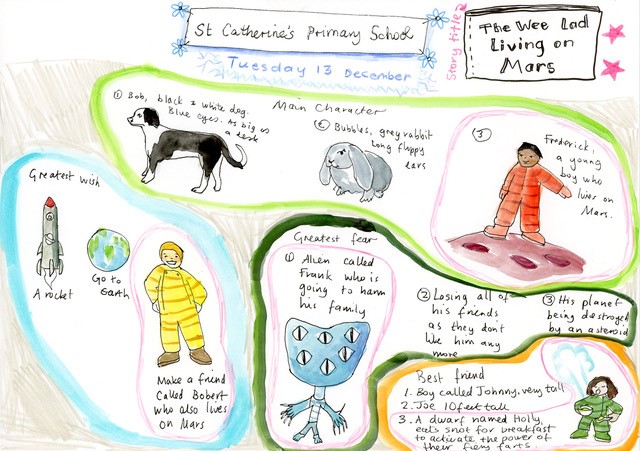 St Catherine's Primary School
Tuesday 13 December
Story title
The Wee Lad
Living on
Mars
Main Character
① Bob, black & white dog.
Blue eyes. As big as
a desk
② Bubbles, grey rabbit
long floppy
ears
③
Frederick,
a young
boy who
lives on
Mars.
Greatest wish
A rocket
Go to
Earth
Make a friend
Called Bobert
who also lives
on Mars
Greatest fear
① Alien called
Frank who is
going to harm
his family
② Losing all of
his friends
as they dont
like him any
more
③ His planet
being destroyed
by an asteroid
Best friend
1. Boy called Johnny, very tall
2. Joe 10 feet tall
3. A dwarf named Holly,
eats snot for breakfast
to activate the power of
their fiery farts.